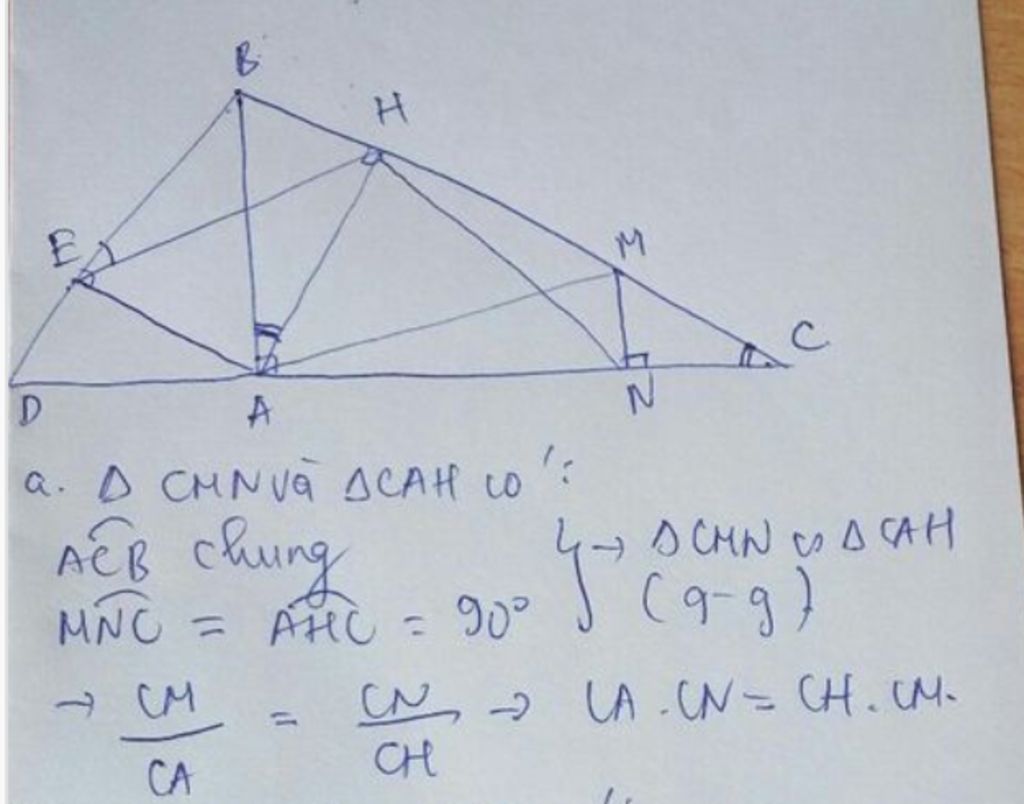 B
H
E
M
C
D
A
N
a. Δ CMN và ΔCAH có :
ACB chung
MNC = AHC = 90°
} → ΔCMN ∽ ΔCAH
(g-g)
→ CM/CA = CN/CH → CA . CN = CH . CM.